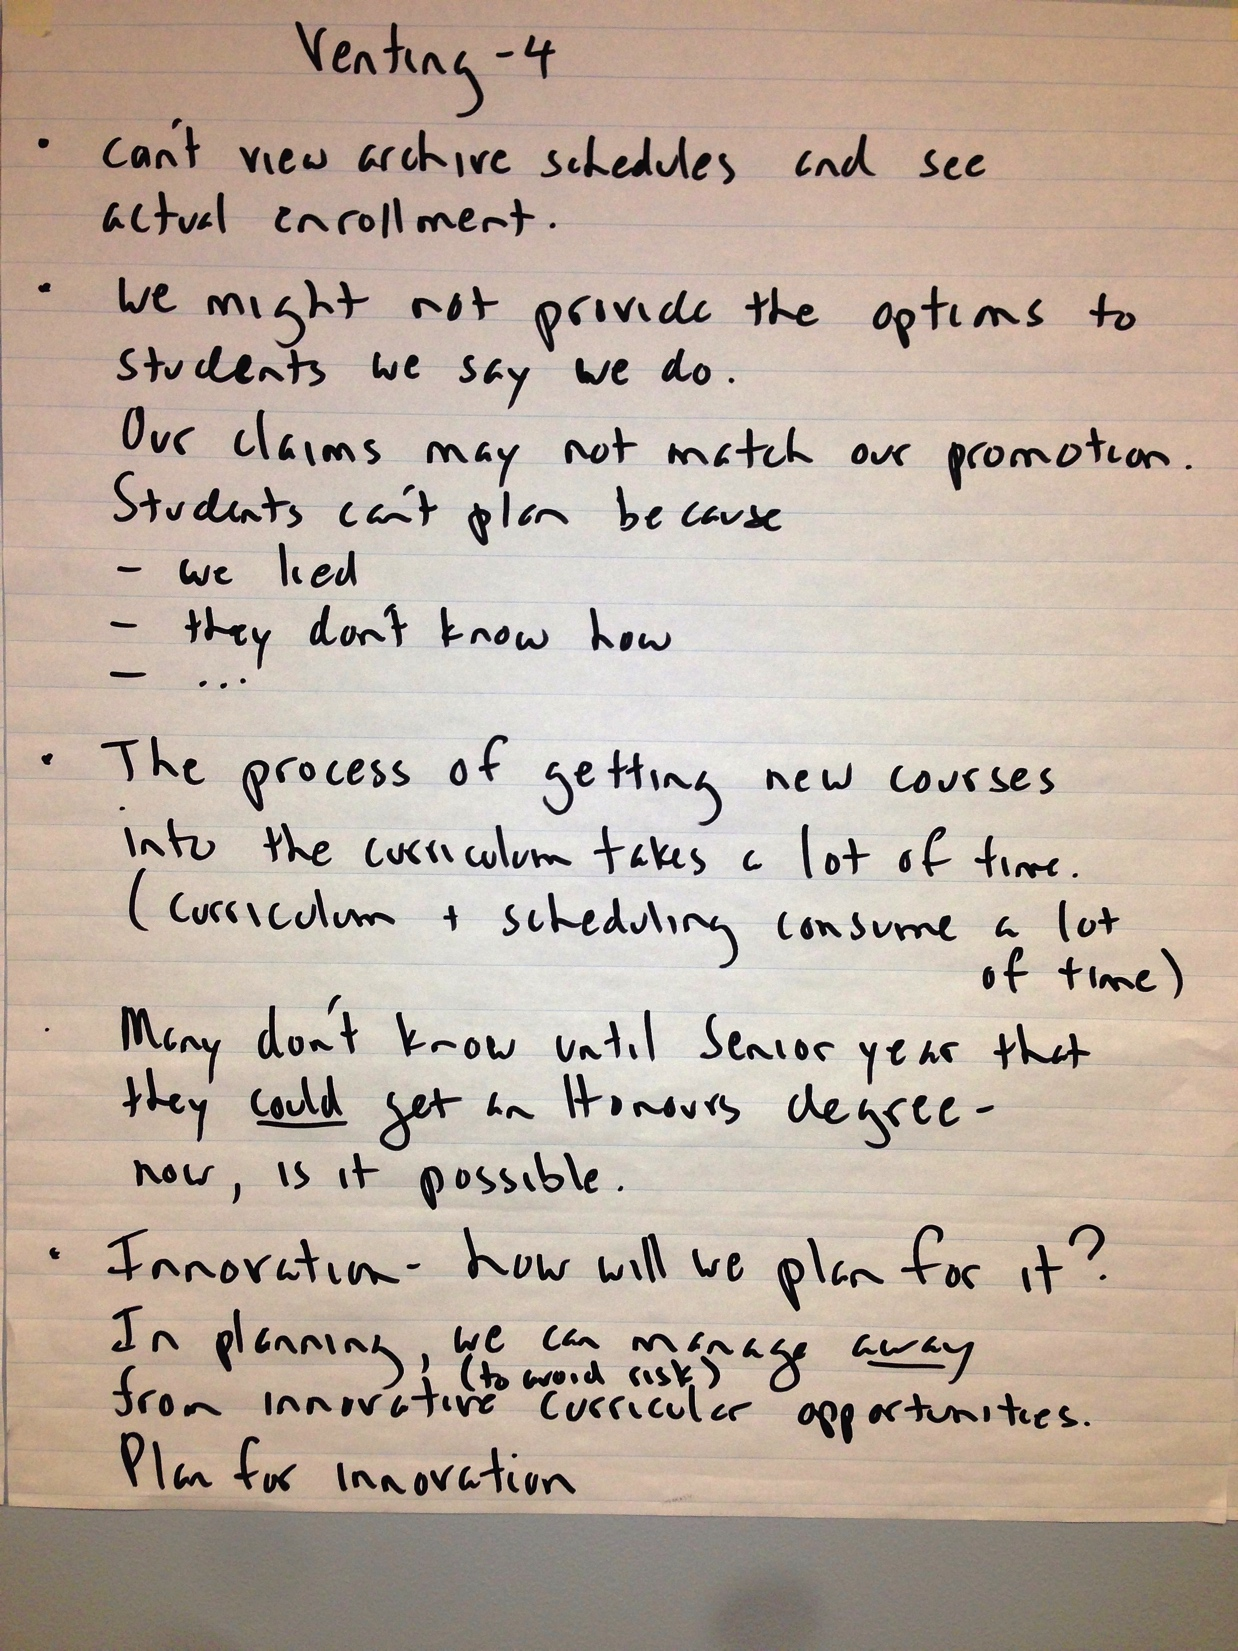 Venting - 4
• can't view archive schedules and see
actual enrollment.
• We might not provide the options to
students we say we do.
Our claims may not match our promotion.
Students can't plan because
- we lied
- they don't know how
- ...
• The process of getting new courses
into the curriculum takes a lot of time.
(curriculum + scheduling consume a lot
of time)
• Many don't know until Senior year that
they could get an Honours degree -
now, is it possible.
• Innovation - how will we plan for it?
In planning, we can manage away
(to avoid risk)
from innovative curricular opportunities.
Plan for innovation